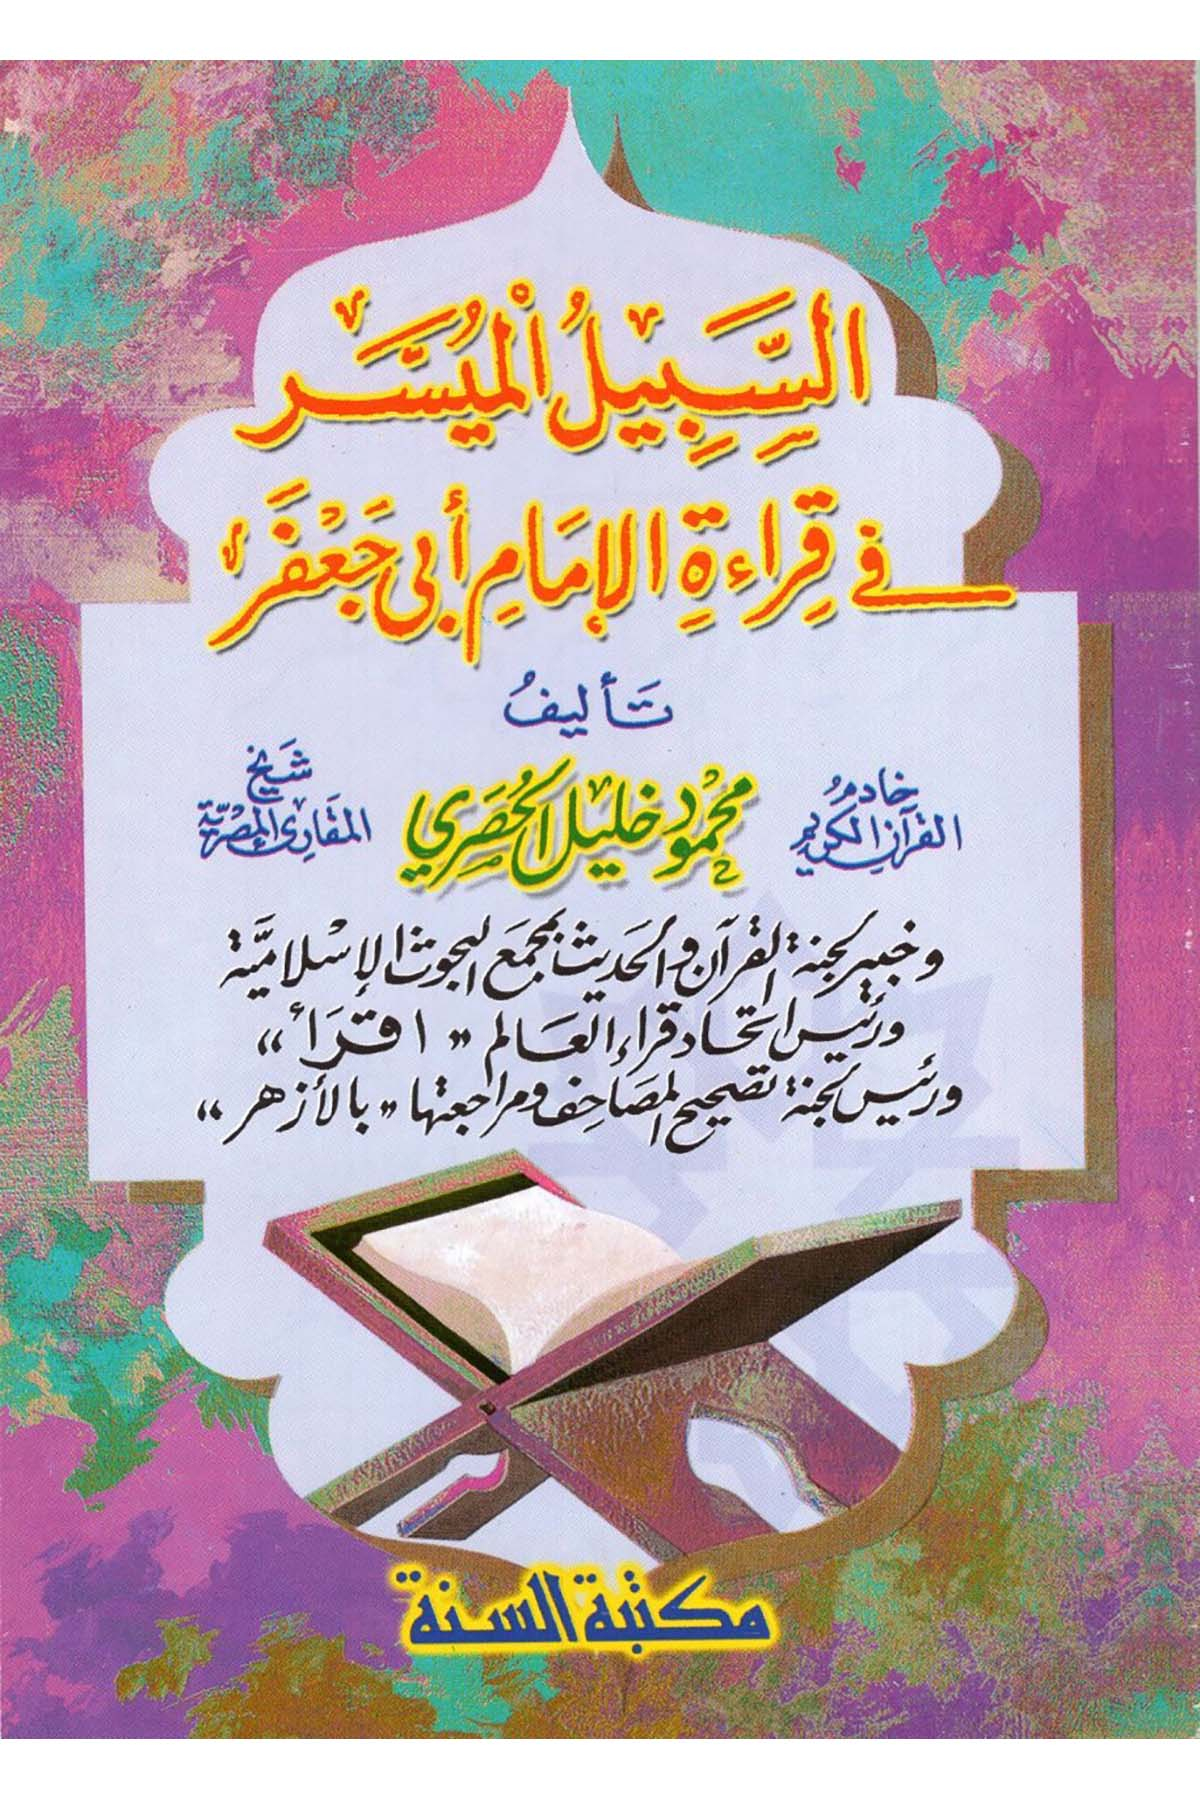 السَّبِيلُ الْمُيَسَّر
في قِرَاءةِ الإمَامِ أبي جَعْفَر
تَأليفُ
خادمُ القرآن الكريم
محمود خليل الحُصَري
شَيخ المقَارئ المصْريّة
وخبير لجنة القرآن والحديث بمجمع البحوث الإسْلاميَّة
ورئيس اتحاد قراء العالم "اقرَأ"
ورئيس لجنة تصحيح المصَاحف ومراجعتها "بالأزهر"
مكتبة السنة